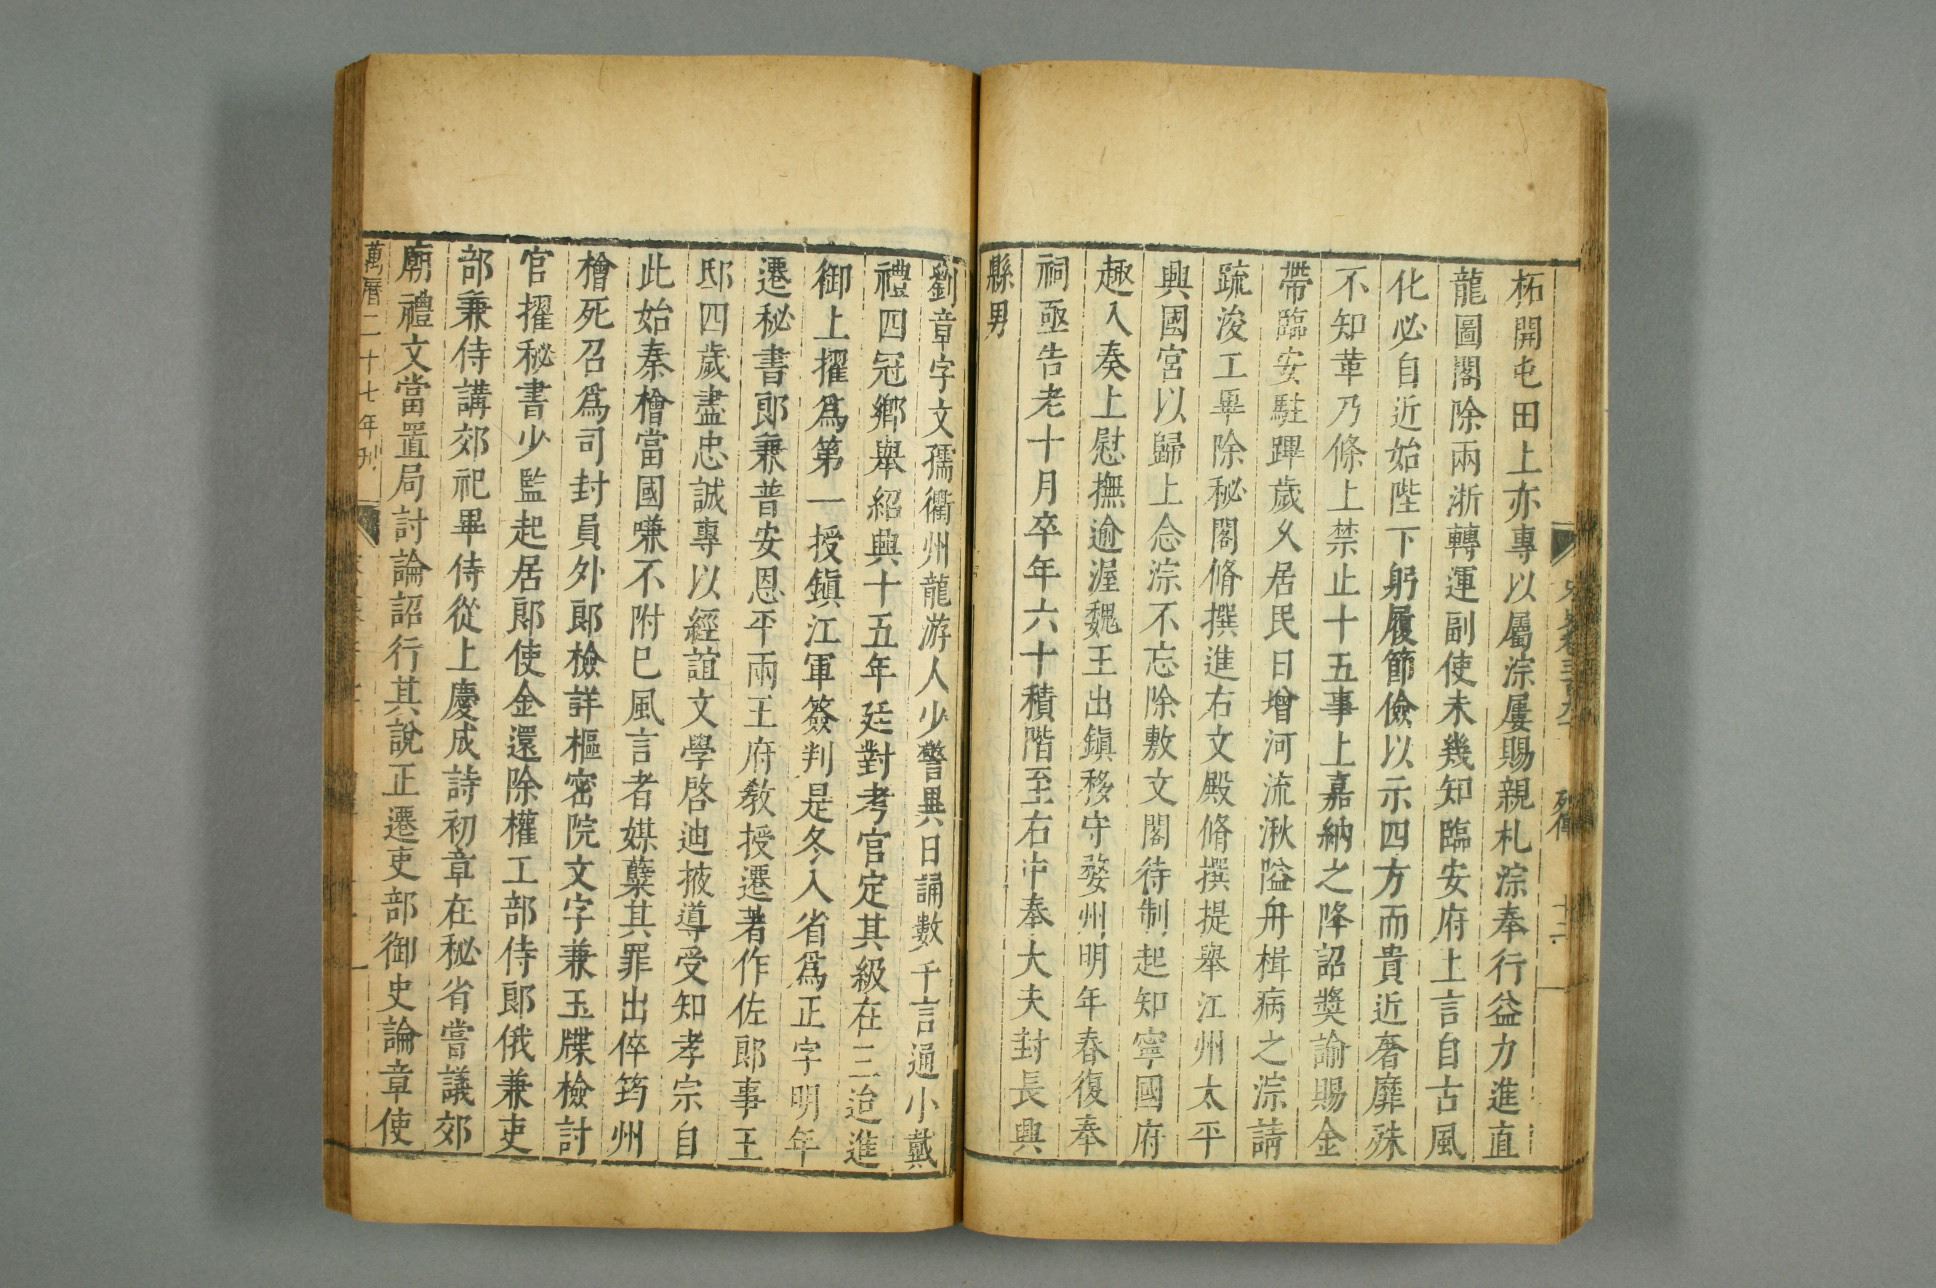 柘開屯田上亦專以屬淙屢賜親札淙奉行益力進直
龍圖閣除兩浙轉運副使未幾知臨安府上言自古風
化必自近始陛下躬履節儉以示四方而貴近奢靡殊
不知革乃條上禁止十五事上嘉納之降詔獎諭賜金
帶臨安駐蹕歲久居民日增河流湫隘舟楫病之淙請
疏浚工畢除秘閣脩撰進右文殿脩撰提舉江州太平
興國宮以歸上念淙不忘除敷文閣待制起知寧國府
趣入奏上慰撫逾渥魏王出鎮移守婺州明年春復奉
祠亟告老十月卒年六十積階至右中奉大夫封長興
縣男
劉章字文孺衢州龍游人少警異日誦數千言通小戴
禮四冠鄉舉紹興十五年廷對考官定其級在三迨進
御上擢爲第一授鎭江軍簽判是冬入省爲正字明年
遷秘書郎兼普安恩平兩王府敎授遷著作佐郎事王
邸四歲盡忠誠專以經誼文學啓迪掖導受知孝宗自
此始秦檜當國嗛不附已風言者媒蘖其罪出倅筠州
檜死召爲司封員外郎檢詳樞密院文字兼玉牒檢討
官擢秘書少監起居郎使金還除權工部侍郎俄兼吏
部兼侍講郊祀畢侍從上慶成詩初章在秘省嘗議郊
廟禮文當置局討論詔行其說正遷吏部御史論章使
萬曆二十七年刊